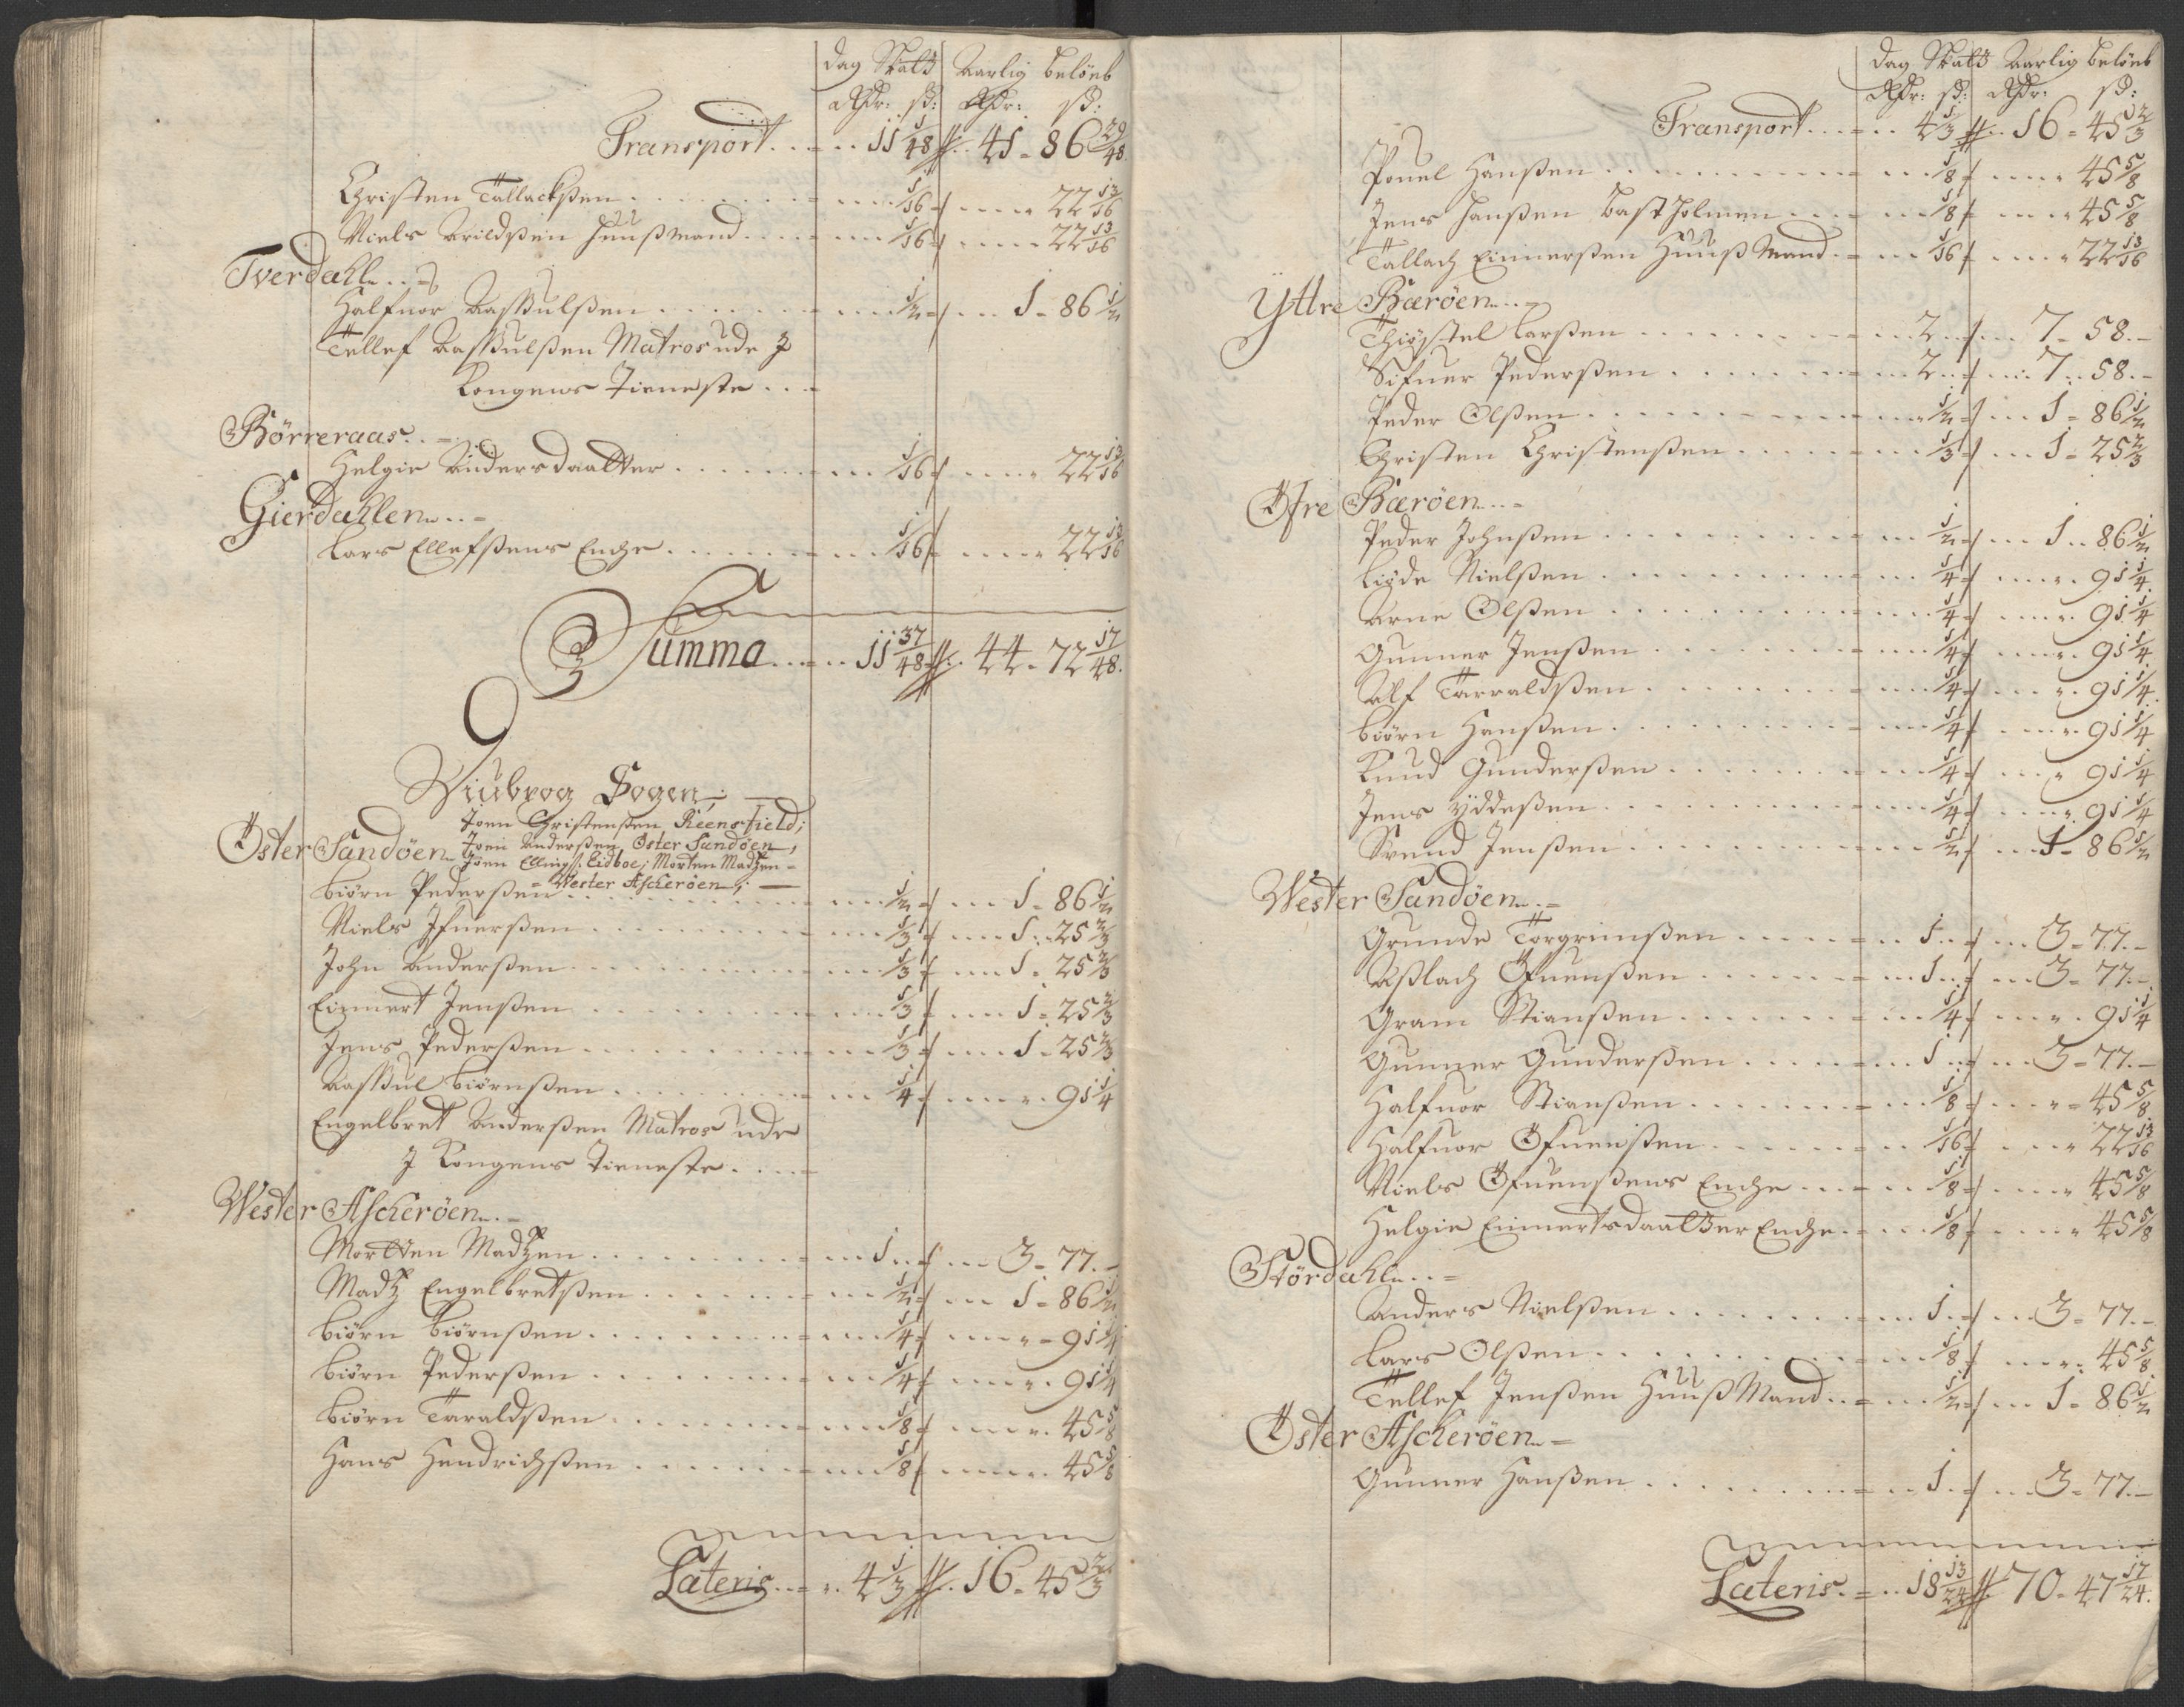 Dag Skatt Aarlig beløeb
Rdr: sk: Rdr: sk:
Transport . . . 11 1/48 41 - 86 29/48
Christen Tallackßen . . . 1/16 22 13/16
Niels Arildßen Huußmand . . . 1/16 22 13/16
Tverdahl
Halfuor Aasulßen . . . 1/2 1 - 86 1/2
Tellef Aasulßen Matros ude J
Kongens Tieneste . . .
Börreraas
Helgie Andersdaatter . . . 1/16 22 13/16
Gierdahlen
Lars Ellefßens Enche . . . 1/16 22 13/16
Summa . . . 11 37/48 44 - 72 17/48
Diubvog Sogen;
Joen Christensen Reensfield;
Öster Sandöen Joen Anderßen Öster Sandöen,
Joen Ellingß: Eidboe; Morten Madzen -
- Wester Ascheröen;
Biörn Pederßen . . . 1/2 1 - 86 1/2
Niels Jfuerßen . . . 1/3 1 - 25 2/3
John Anderßen . . . 1/3 1 - 25 2/3
Einert Jenßen . . . 1/3 1 - 25 2/3
Jens Pederßen . . . 1/3 1 - 25 2/3
Aasul Biörnßen . . . 1/4 91 1/4
Engelbret Anderßen Matros ude
J Kongens Tieneste . . .
Wester Ascheröen
Mortten Madzen . . . 1 3 - 77 -
Madz Engelbretßen . . . 1/2 1 - 86 1/2
Biörn Biörnßen . . . 1/4 91 1/4
Biörn Pederßen . . . 1/4 91 1/4
Biörn Taraldßen . . . 1/8 45 5/8
Hans Hendrichßen . . . 1/8 45 5/8
Lateris . . . 4 1/3 16 - 45 2/3
Dag Skatt Aarlig beløeb
Rdr: sk: Rdr: sk:
Transport . . . 4 1/3 16 - 45 2/3
Pouel Hanßen . . . 1/8 45 5/8
Jens Hanßen Bastholmen . . . 1/8 45 5/8
Tallach Einerßen Huuß Mand . . . 1/16 22 13/16
Yttre Bæröen
Thiöstel Larßen . . . 2 7 - 58 -
Sifuer Pederßen . . . 2 7 - 58 -
Peder Olßen . . . 1/2 1 - 86 1/2
Christen Christenßen . . . 1/3 1 - 25 2/3
Öfre Bæröen
Peder Johnßen . . . 1/2 1 - 86 1/2
Liöde Nielßen . . . 1/4 91 1/4
Arne Olßen . . . 1/4 91 1/4
Gunner Jenßen . . . 1/4 91 1/4
Alf Tarraldßen . . . 1/4 91 1/4
Biörn Hanßen . . . 1/4 91 1/4
Knud Gunderßen . . . 1/4 91 1/4
Jens Yddeßen . . . 1/4 91 1/4
Svend Jenßen . . . 1/2 1 - 86 1/2
Wester Sandöen
Grunde Torgrimßen . . . 1 3 - 77 -
Aßlach Öfuenßen . . . 1 3 - 77 -
Gram Stianßen . . . 1/4 91 1/4
Gunner Gunderßen . . . 1 3 - 77 -
Halfuor Stianßen . . . 1/8 45 5/8
Halfuor Öfuenßen . . . 1/16 22 13/16
Niels Öfuenßens Enche . . . 1/8 45 5/8
Helgie Einertsdaatter Enche . . . 1/8 45 5/8
Stördahl
Anders Nielßen . . . 1 3 - 77 -
Lars Olßen . . . 1/8 45 5/8
Tellef Jenßen Huuß Mand . . . 1/2 1 - 86 1/2
Öster Ascheröen
Gunner Hanßen . . . 1 3 - 77 -
Lateris . . . 18 13/24 70 - 47 17/24